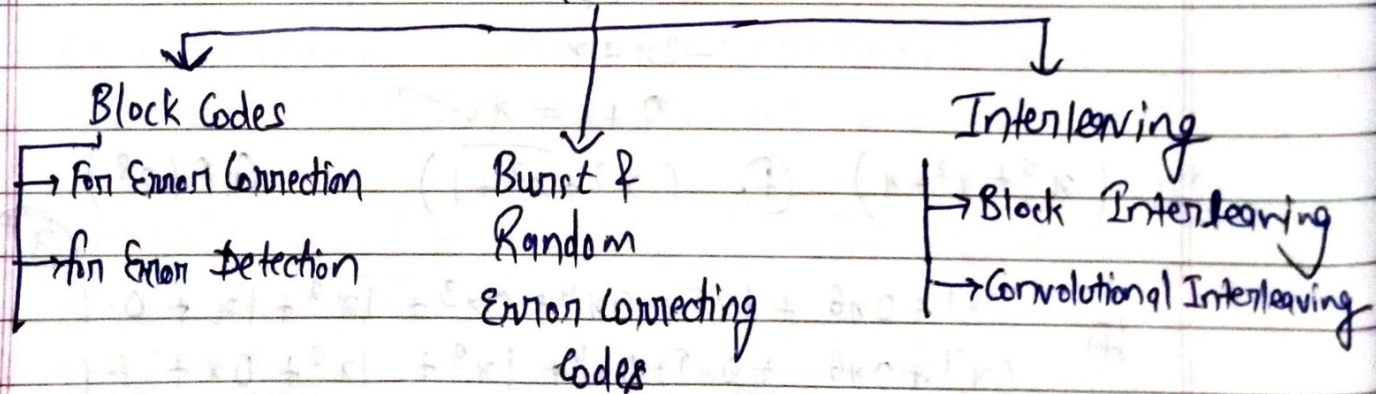 Block Codes
→ For Error Correction
→ for Error Detection
Burst &
Random
Error Correcting
Codes
Interleaving
→ Block Interleaving
→ Convolutional Interleaving